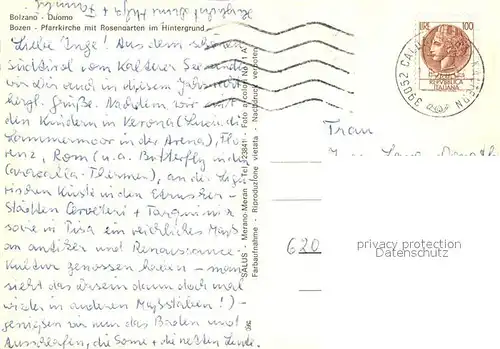 Bolzano - Duomo
Bozen - Pfarrkirche mit Rosengarten im Hintergrund
Liebe Inge! Aus dem schönen
Südtirol vom Kalterer See senden
wir Dir auch in diesem Jahr
herzl. Grüße. Nachdem wir mit
den Kindern in Verona (Lucia di
Lammermoor in der Arena), Flo-
renz, Rom (u.a. Butterfly in den
Caracalla-Thermen), an der Ligu-
rischen Küste in den Etrusker-
Städten Cerveteri + Tarquinia
sowie in Pisa ein reichliches Maß
an antiker und Renaissance-
Kultur genossen haben - man
sieht das dann doch mal
wieder in anderen Maßstäben!) -
genießen wir nun das Baden und
Ausschlafen, die Sonne + die netten Leute.
"SALUS" - Merano-Meran - Tel. 23841 - Foto a colori
Farbaufnahme - Riproduzione vietata - Nachdruck verboten
LIRE 100
REPUBBLICA
ITALIANA
39052
Frau
620
privacy protection
Datenschutz